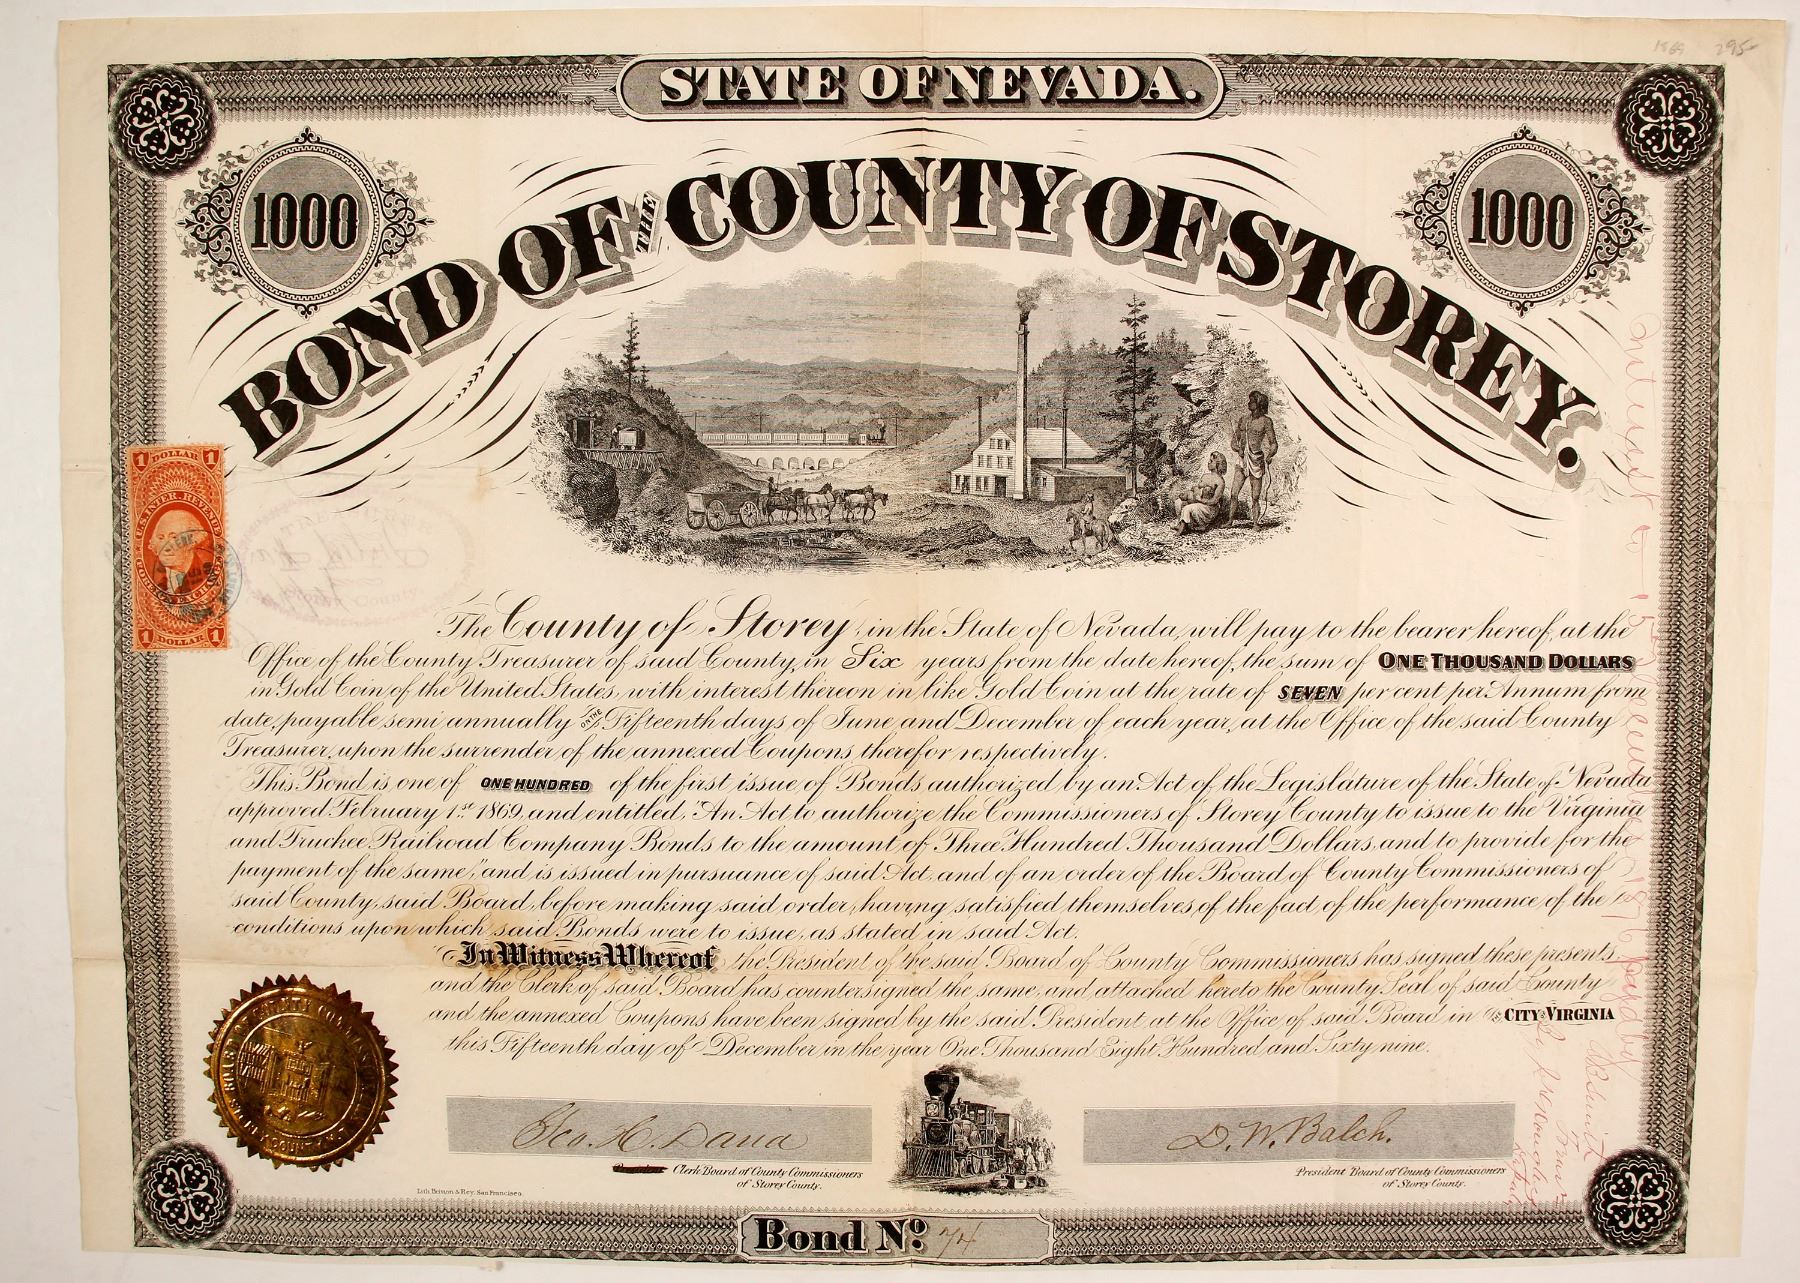 1869 295-
STATE OF NEVADA.
1000
1000
BOND OF THE COUNTY OF STOREY.
1 DOLLAR 1
U.S. INTER. REVENUE
FOREIGN EXCHANGE
1 DOLLAR 1
County
The County of Storey, in the State of Nevada, will pay to the bearer hereof, at the
Office of the County Treasurer of said County, in Six years from the date hereof, the sum of ONE THOUSAND DOLLARS
in Gold Coin of the United States, with interest thereon in like Gold Coin at the rate of SEVEN per cent per Annum from
date, payable semi annually ON THE Fifteenth days of June and December of each year, at the Office of the said County
Treasurer, upon the surrender of the annexed Coupons therefor respectively.
This Bond is one of ONE HUNDRED of the first issue of Bonds authorized by an Act of the Legislature of the State of Nevada
approved February 1st 1869, and entitled, "An Act to authorize the Commissioners of Storey County to issue to the Virginia
and Truckee Railroad Company Bonds to the amount of Three Hundred Thousand Dollars, and to provide for the
payment of the same," and is issued in pursuance of said Act, and of an order of the Board of County Commissioners of
said County, said Board, before making said order, having satisfied themselves of the fact of the performance of the
conditions upon which said Bonds were to issue, as stated in said Act.
In Witness Whereof the President of the said Board of County Commissioners has signed these presents
and the Clerk of said Board has countersigned the same, and attached hereto the County Seal of said County
and the annexed Coupons have been signed by the said President, at the Office of said Board in THE CITY OF VIRGINIA
this Fifteenth day of December in the year One Thousand Eight Hundred and Sixty nine.
Geo. H. Dana
D. W. Balch.
Clerk Board of County Commissioners
of Storey County.
President Board of County Commissioners
of Storey County.
Lith. Britton & Rey, San Francisco.
Bond No. 74
Interest to 15 December 1876 paid by